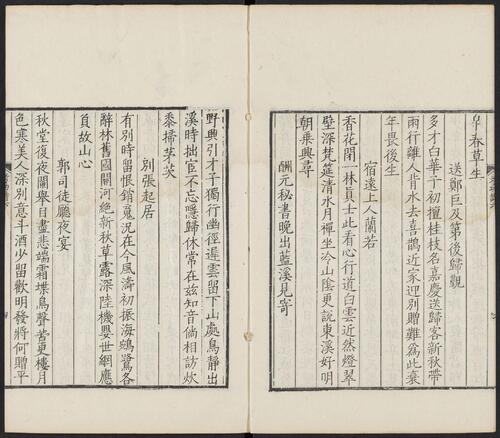 早春草生
送鄭巨及第後歸覲
多才白華子初擅桂枝名嘉慶送歸客新秋帶
雨行離人背水去喜鵲近家迎別贈難爲此衰
年畏後生
宿遠上人蘭若
香花閉一林真士此看心行道白雲近然燈翠
壁深梵筵清水月禪坐冷山陰更說東溪好明
朝乘興尋
酬元秘書晚出藍溪見寄
野興引才子獨行幽徑遲雲留下山處鳥靜出
溪時拙宦不忘隱歸休常在茲知音倘相訪炊
黍掃茅茨
別張起居
有別時留恨銷魂況在今風濤初振海鵷鷺各
辭林舊國關河絕新秋草露深陸機嬰世網應
負故山心
郭司徒廳夜宴
秋堂復夜闌舉目盡悲端霜堞烏聲苦更樓月
色寒美人深別意斗酒少留歡明發將何贈平